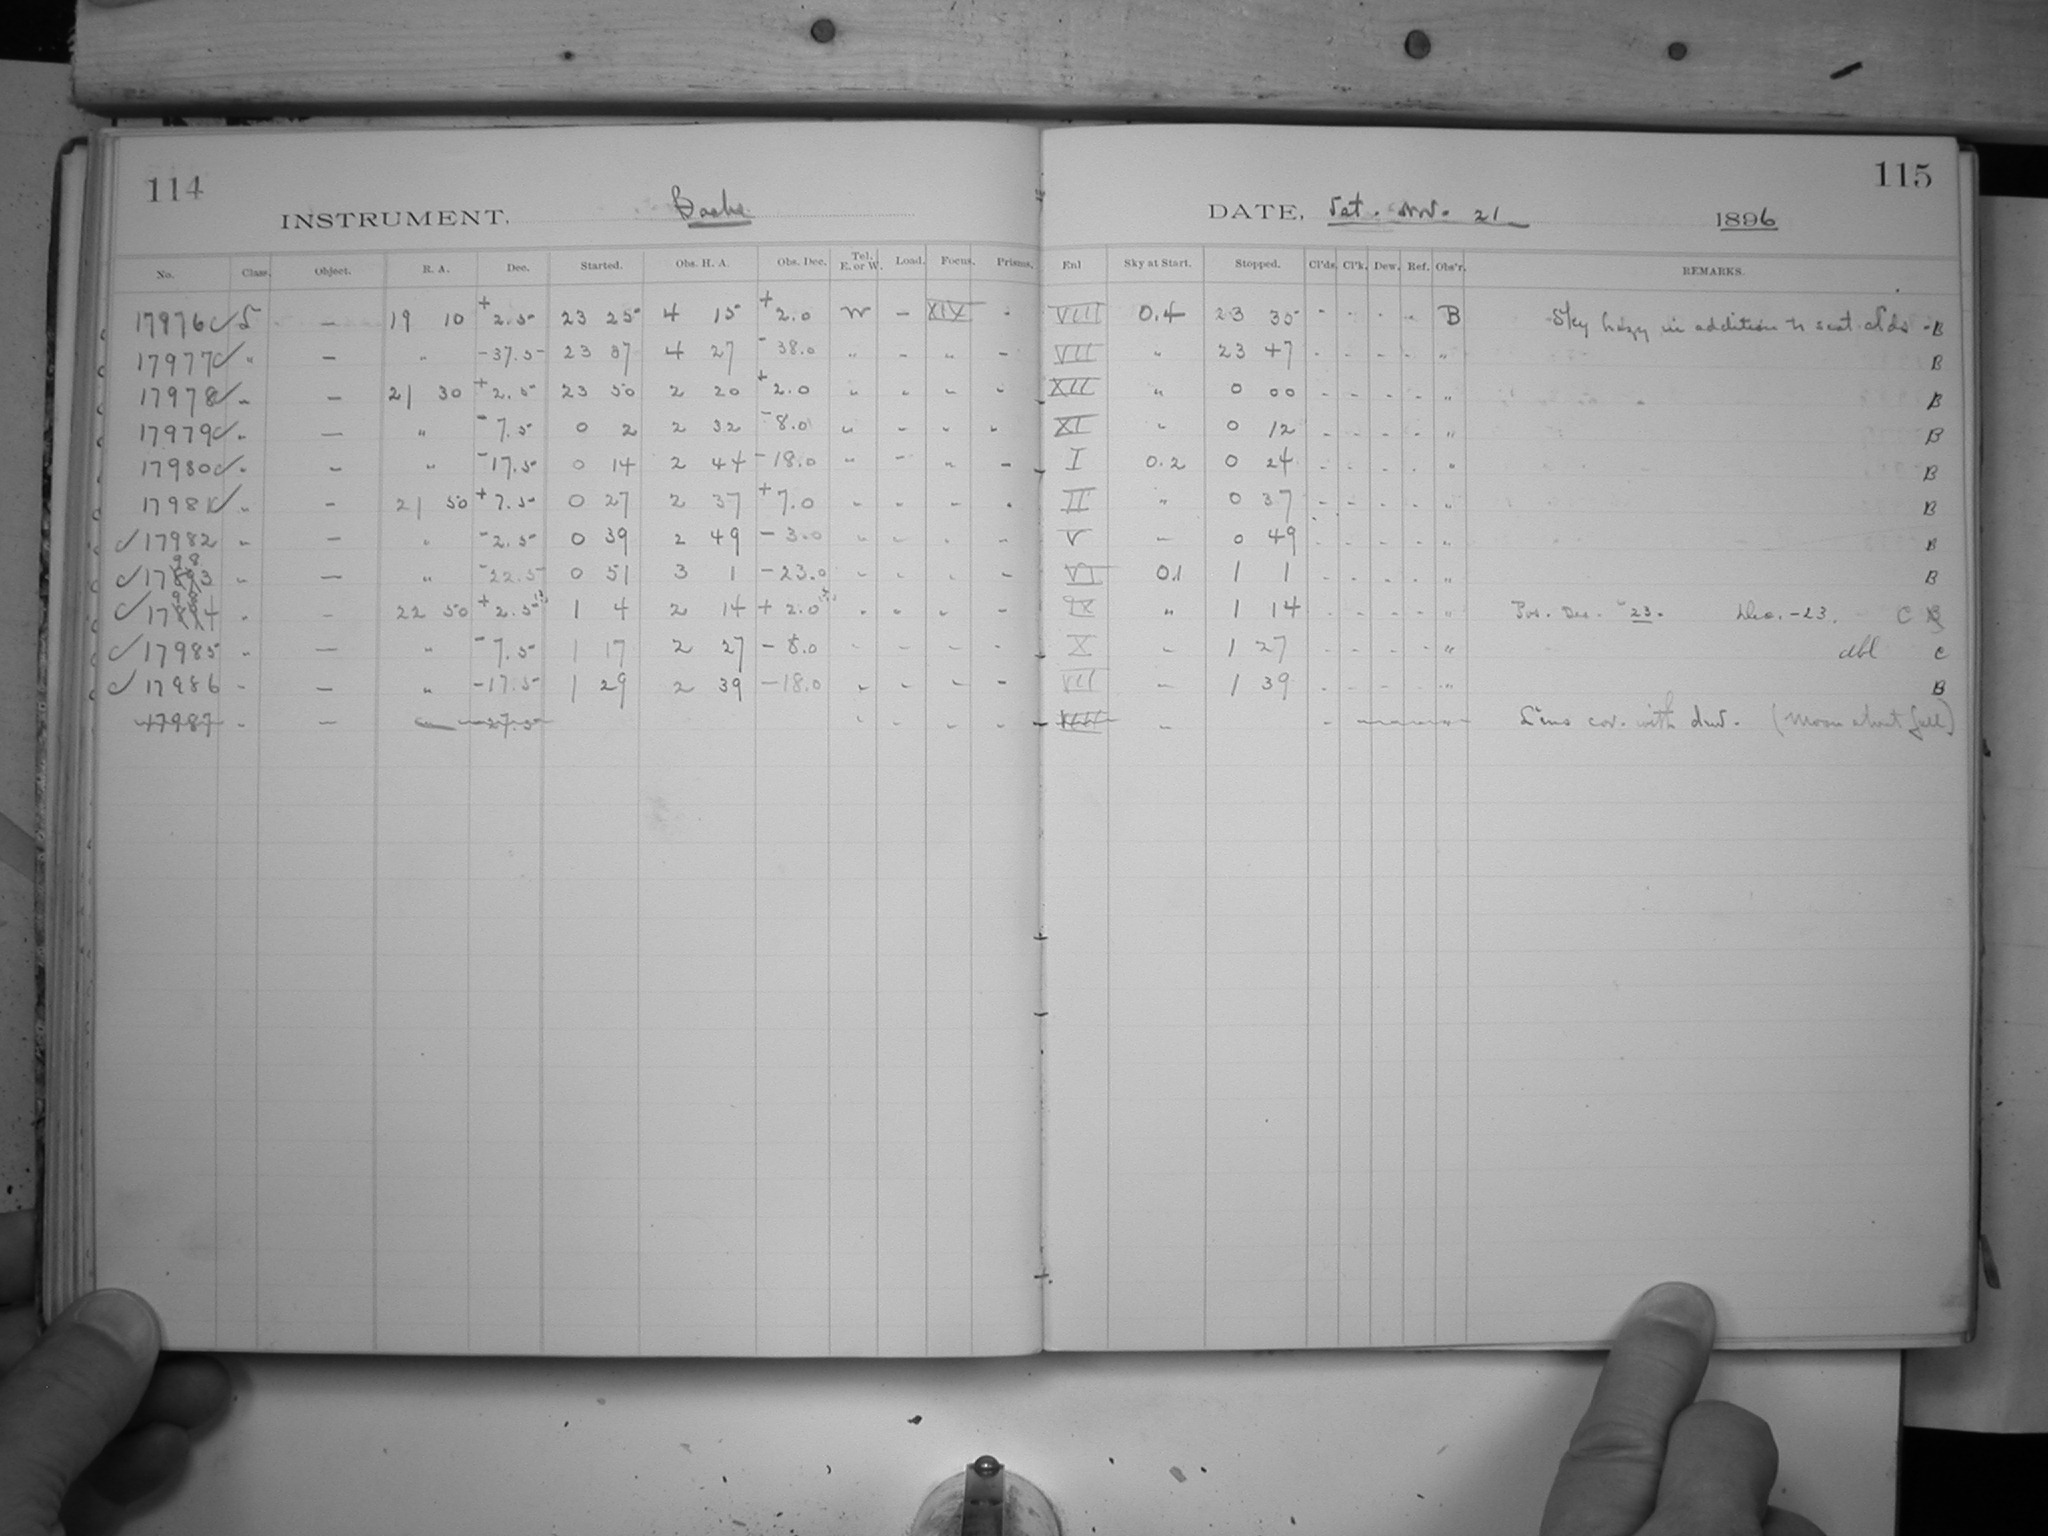 114
115
INSTRUMENT, Bache
DATE, Sat. Nov. 21 1896
No. Class. Object. R. A. Dec. Started. Obs. H. A. Obs. Dec. Tel. E. or W. Load. Focus. Prisms. Enl Sky at Start. Stopped. Cl'ds. Cl'k. Dew. Ref. Obs'r. REMARKS.
17976 ✓ S — 19 10 +2.5 23 25 4 15 +2.0 W – XIX - VIII 0.4 23 35 - - - - B Sky hazy in addition to scat. clds - B
17977 ✓ " — " -37.5 23 37 4 27 -38.0 " - " - VII " 23 47 - - - - " B
17978 ✓ " — 21 30 +2.5 23 50 2 20 +2.0 " " " " XII " 0 00 - - - - " B
17979 ✓ " — " -7.5 0 2 2 32 -8.0 " - " " XI " 0 12 - - - - " B
17980 ✓ " — " -17.5 0 14 2 44 -18.0 " - " - I 0.2 0 24 - - - - " B
17981 ✓ " — 21 50 +7.5 0 27 2 37 +7.0 " " - - II " 0 37 - - - - " B
✓ 17982 " — " -2.5 0 39 2 49 -3.0 " " " " V " 0 49 - - - - " B
98
✓ 17893 " — " -22.5 0 51 3 1 -23.0 " " " - VI 0.1 1 1 - - - - " B
98
✓ 17894 " - 22 50 +2.5 1 4 2 14 +2.0 " " " " IX " 1 14 - - - - " Pos. Dec. -23. Dec. -23. C B
✓ 17985 " — " -7.5 1 17 2 27 -8.0 - - - - X " 1 27 - - - - " dbl C
✓ 17986 " — " -17.5 1 29 2 39 -18.0 " " " - VII " 1 39 - - - - " B
17987 " — -27.5 " " " - XIII " Lens cov. with dew. (Moon about full)